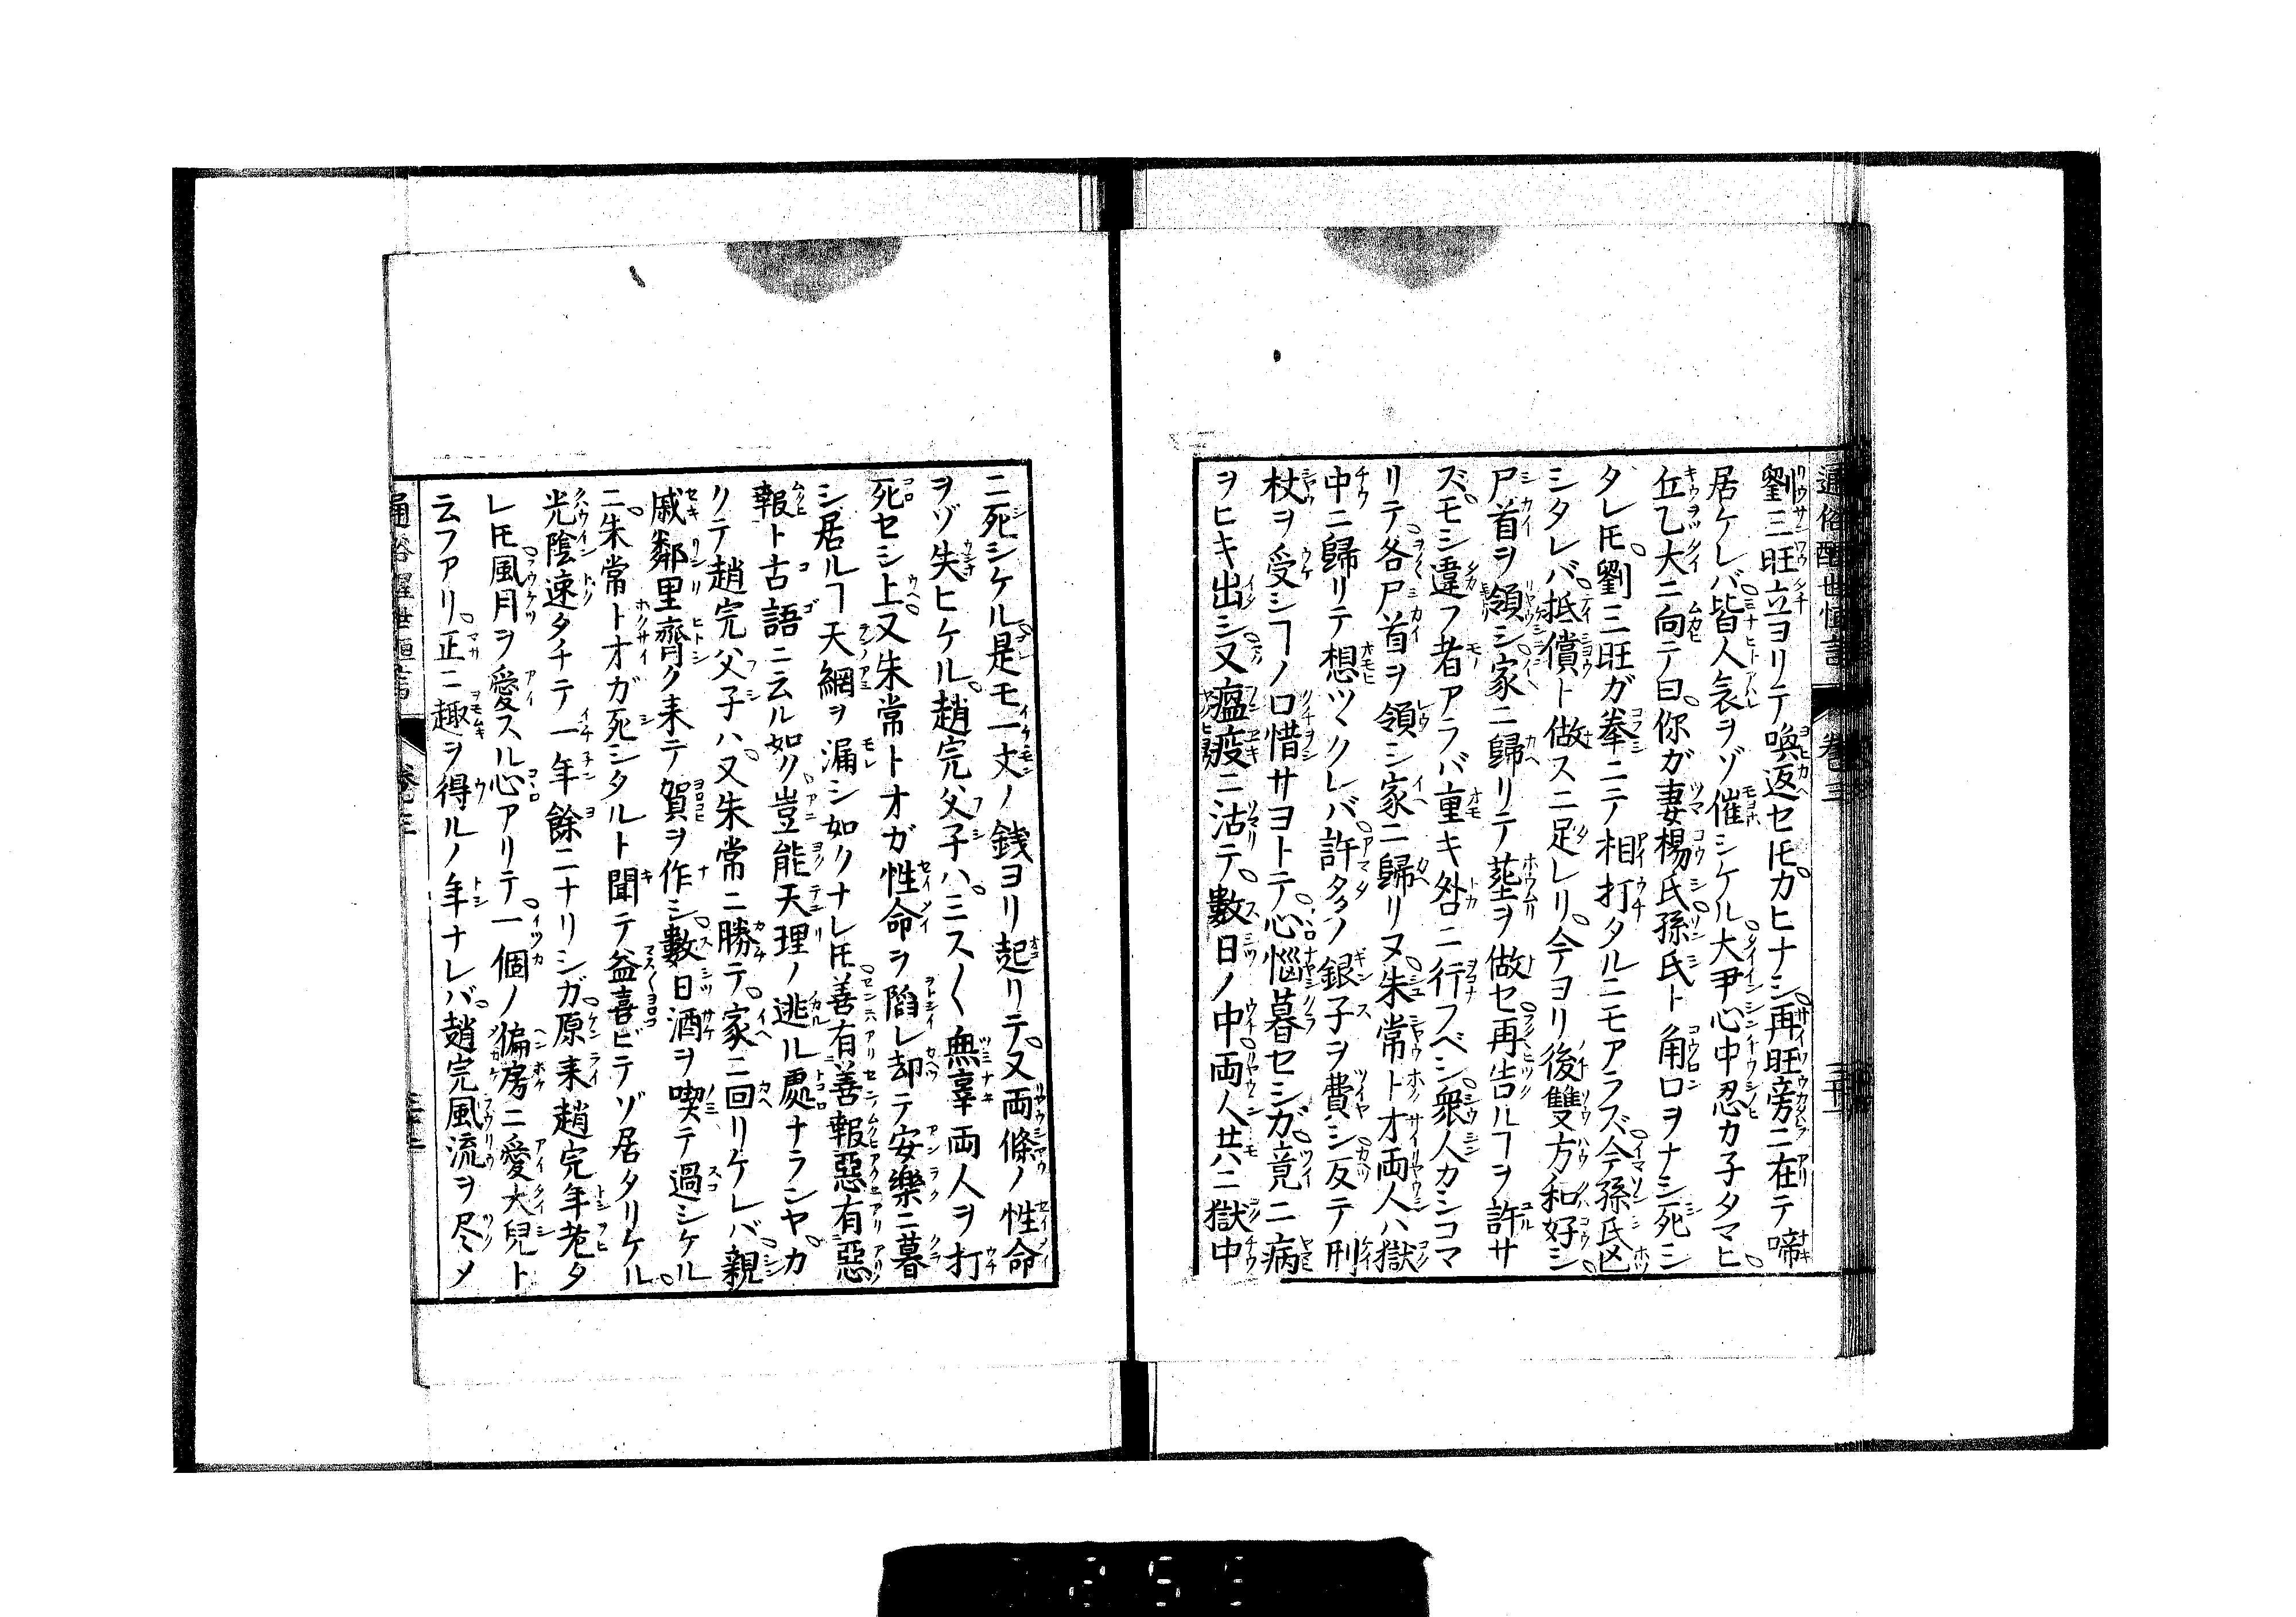 通俗醒世恒言 卷三
劉三旺立ヨリテ喚返セ𪜈。カヒナシ。再旺旁ニ在テ啼
居ケレバ。皆人哀ヲゾ催シケル。大尹心中忍カ子タマヒ。
丘乙大ニ向テ曰。你ガ妻楊氏。孫氏ト角口ヲナシ。死シ
タレ𪜈。劉三旺ガ拳ニテ相打タルニモアラズ。今孫氏凶
シタレバ。抵償ト做スニ足レリ。今ヨリ後雙方和好シ。
尸首ヲ領シ。家ニ歸リテ塟ヲ做セ。再告ルヿヲ許サ
ズ。モシ違フ者アラバ重キ咎ニ行フベシ。衆人カシコマ
リテ。各尸首ヲ領シ家ニ歸リヌ。朱常卜才両人ハ獄
中ニ歸リテ想ツヾクレバ。許多ノ銀子ヲ費シ。反テ刑
杖ヲ受シヿノ口惜サヨトテ。心惱暮セシガ。竟ニ病
ヲヒキ出シ。又瘟疫ニ沾テ。數日ノ中。両人共ニ獄中
ニ死シケル。是モ一丈ノ銭ヨリ起リテ。又両條ノ性命
ヲゾ失ヒケル。趙完父子ハ。ミス〱無辜両人ヲ打
死セシ上。又朱常卜才ガ性命ヲ陷レ。却テ安樂ニ暮
シ居ルヿ。天網ヲ漏シ如クナレ𪜈。善有善報惡有惡
報ト古語ニ云ル如ク。豈能天理ノ逃ル處ナランヤ。カ
クテ趙完父子ハ。又朱常ニ勝テ。家ニ回リケレバ。親
戚鄰里齊ク来テ賀ヲ作シ。數日酒ヲ喫テ過シケル
ニ。朱常卜才ガ死シタルト聞テ益喜ビテゾ居タリケル。
光陰速タチテ一年餘ニナリシガ。原来趙完年老タ
レ𪜈。風月ヲ愛スル心アリテ。一個ノ偏房ニ愛大兒ト
云フアリ。正ニ趣ヲ得ルノ年ナレバ。趙完風流ヲ尽メ
通俗醒世恒言 卷三